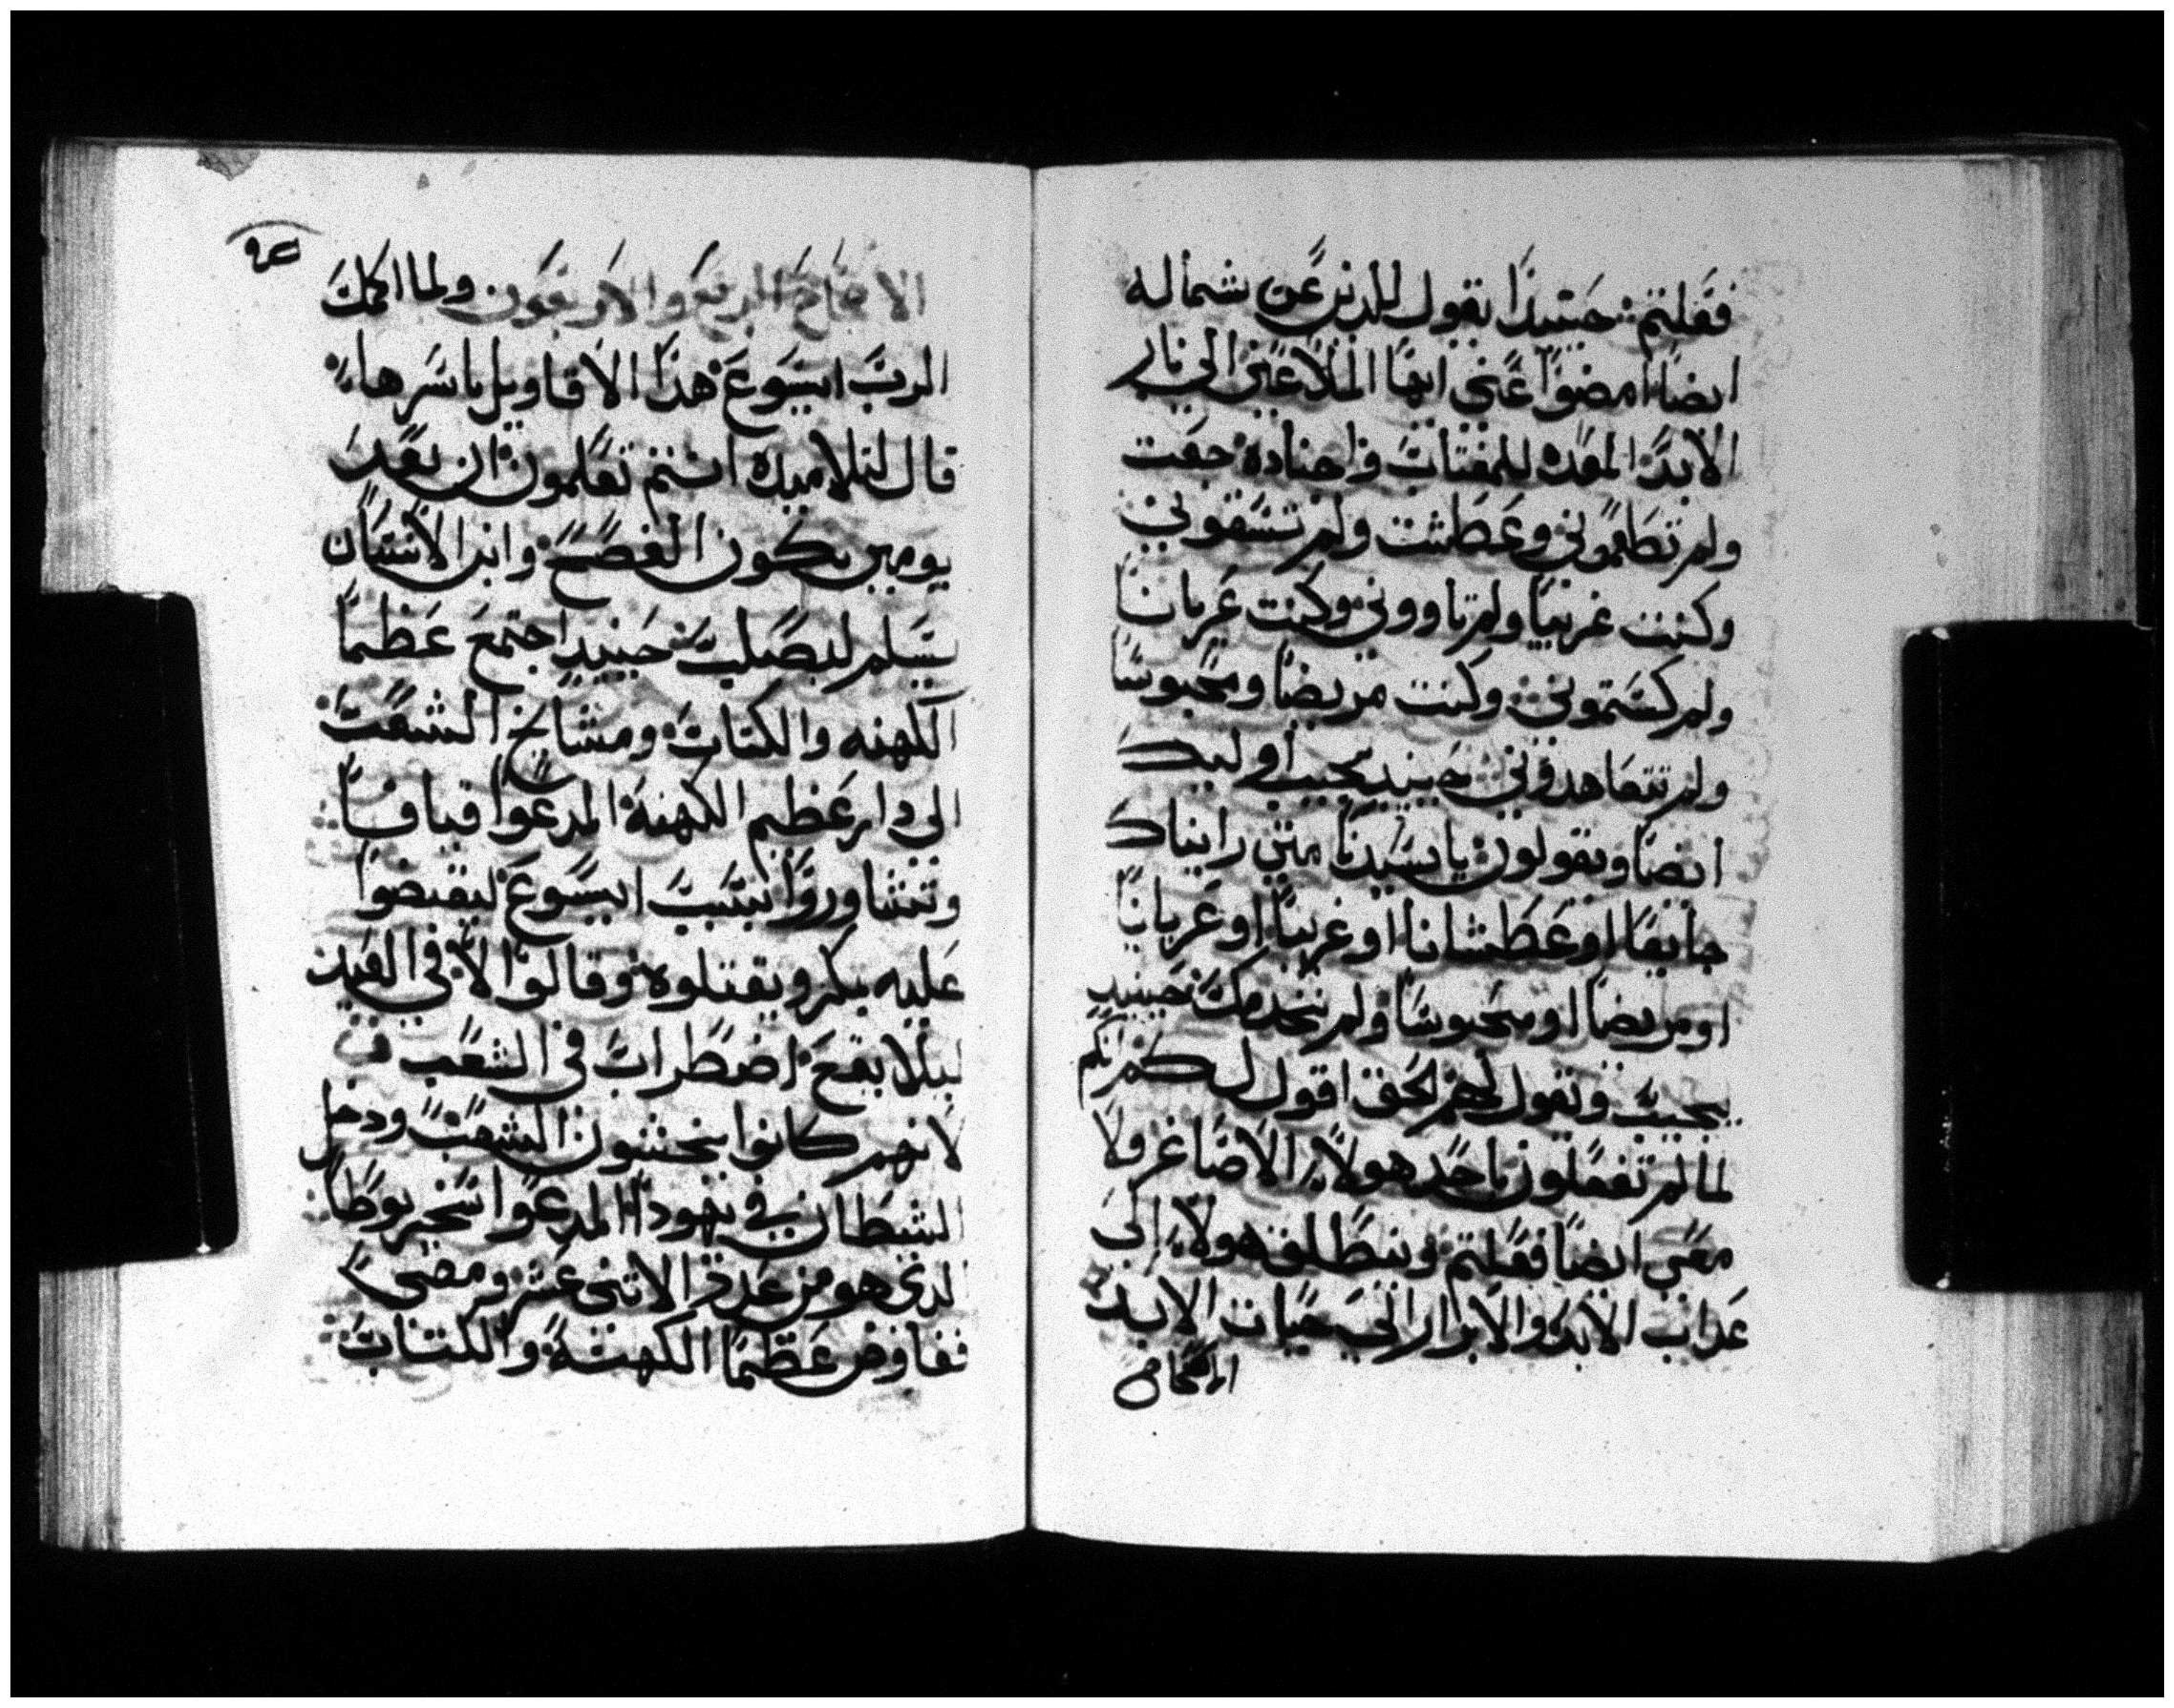 ففعلتم حينيذا يقول للذين عن شماله
ايضا امضوا عني ايها الملاعين الي نار
الابد المعده للمفتات واجناده جعت
ولم تطعموني وعطشت ولم تسقوني
وكنت غريبا ولم تاووني وكنت عريانا
ولم كستموني وكنت مريضا ومحبوسا
ولم تتعاهدوني حينيد يجيب اوليك
ايضا ويقولون يا سيدنا متي رايناك
جايعا او عطشانا او غريبا او عريانا
او مريضا او محبوسا ولم نخدمك حينيد
يجيب ويقول لهم الحق اقول لكم انكم
لما لم تفعلون باحد هولاء الاصاغر فلا
معي ايضا فعلتم وينطلق هولاء الي
عداب الابد والابرار الي حيات الابد
الاصحاح
٩٤
الاصحاح الرابع والاربعون ولما اكمل
الرب ايسوع هدا الاقاويل باسرها
قال لتلاميده انتم تعلمون ان بعد
يومين يكون الفصح وابن الانسان
يسلم ليصلب حينيد اجتمع عظما
الكهنه والكتاب ومشايخ الشعب
الي دار عظيم الكهنة المدعوا قيافا
وتشاوروا بسبب ايسوع ليقبضوا
عليه بمكر ويقتلوه وقالوا لا في العيد
ليلا يقع اضطراب في الشعب
لانهم كانوا يخشون الشعب ودخل
الشيطان في يهودا المدعوا سخريوطا
الدي هو من عدة الاتني عشر ومضي
ففاوض عظما الكهنة والكتاب